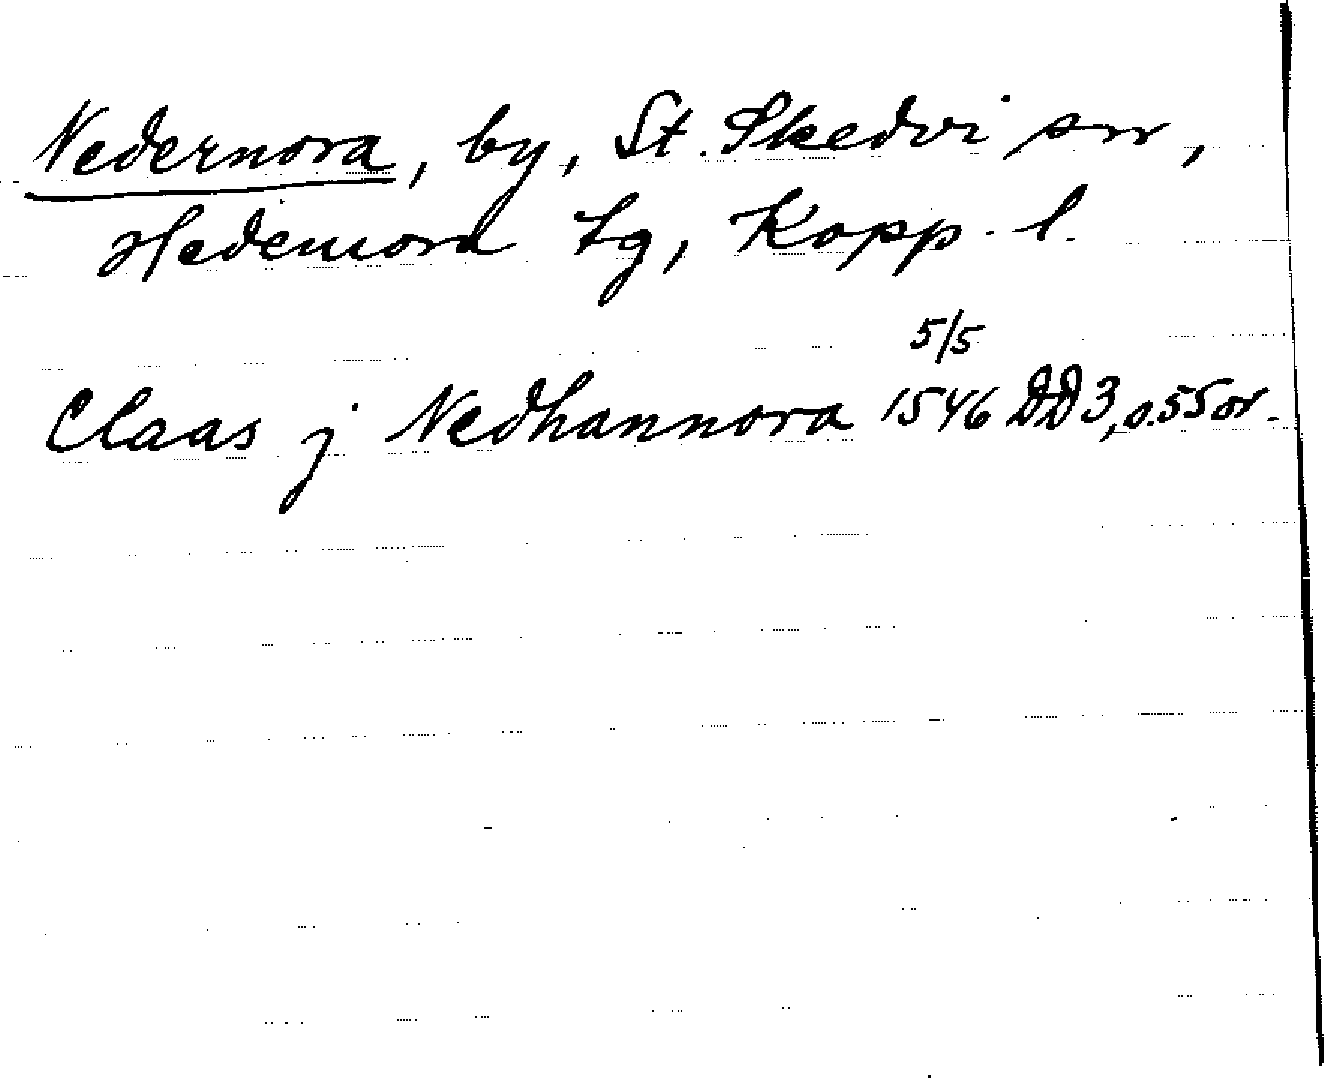 Nedernora, by, St. Skedvi sn,
Hedemora tg, Kopp. l.
5/5
Claas j Nedhannora 1546 DD 3, o. 55 or.